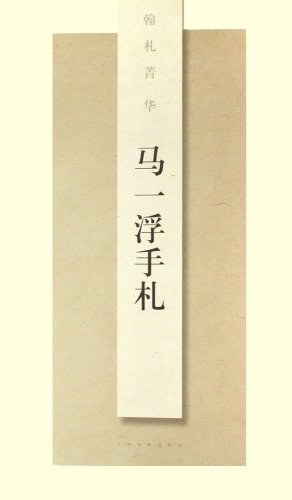 翰札菁华
马一浮手札